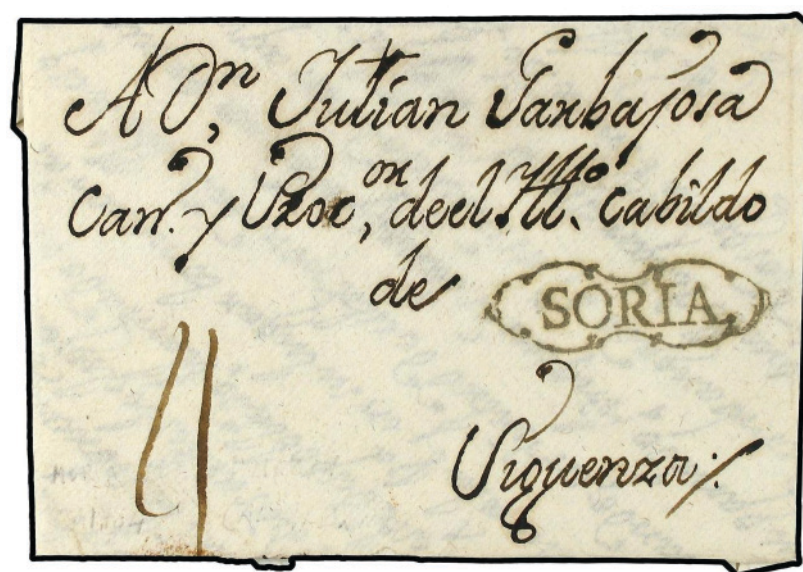 A Dn, Julian Garbajosa
Can. y Proc,or deel Illo. Cabildo
de
SORIA
Siguenza
4